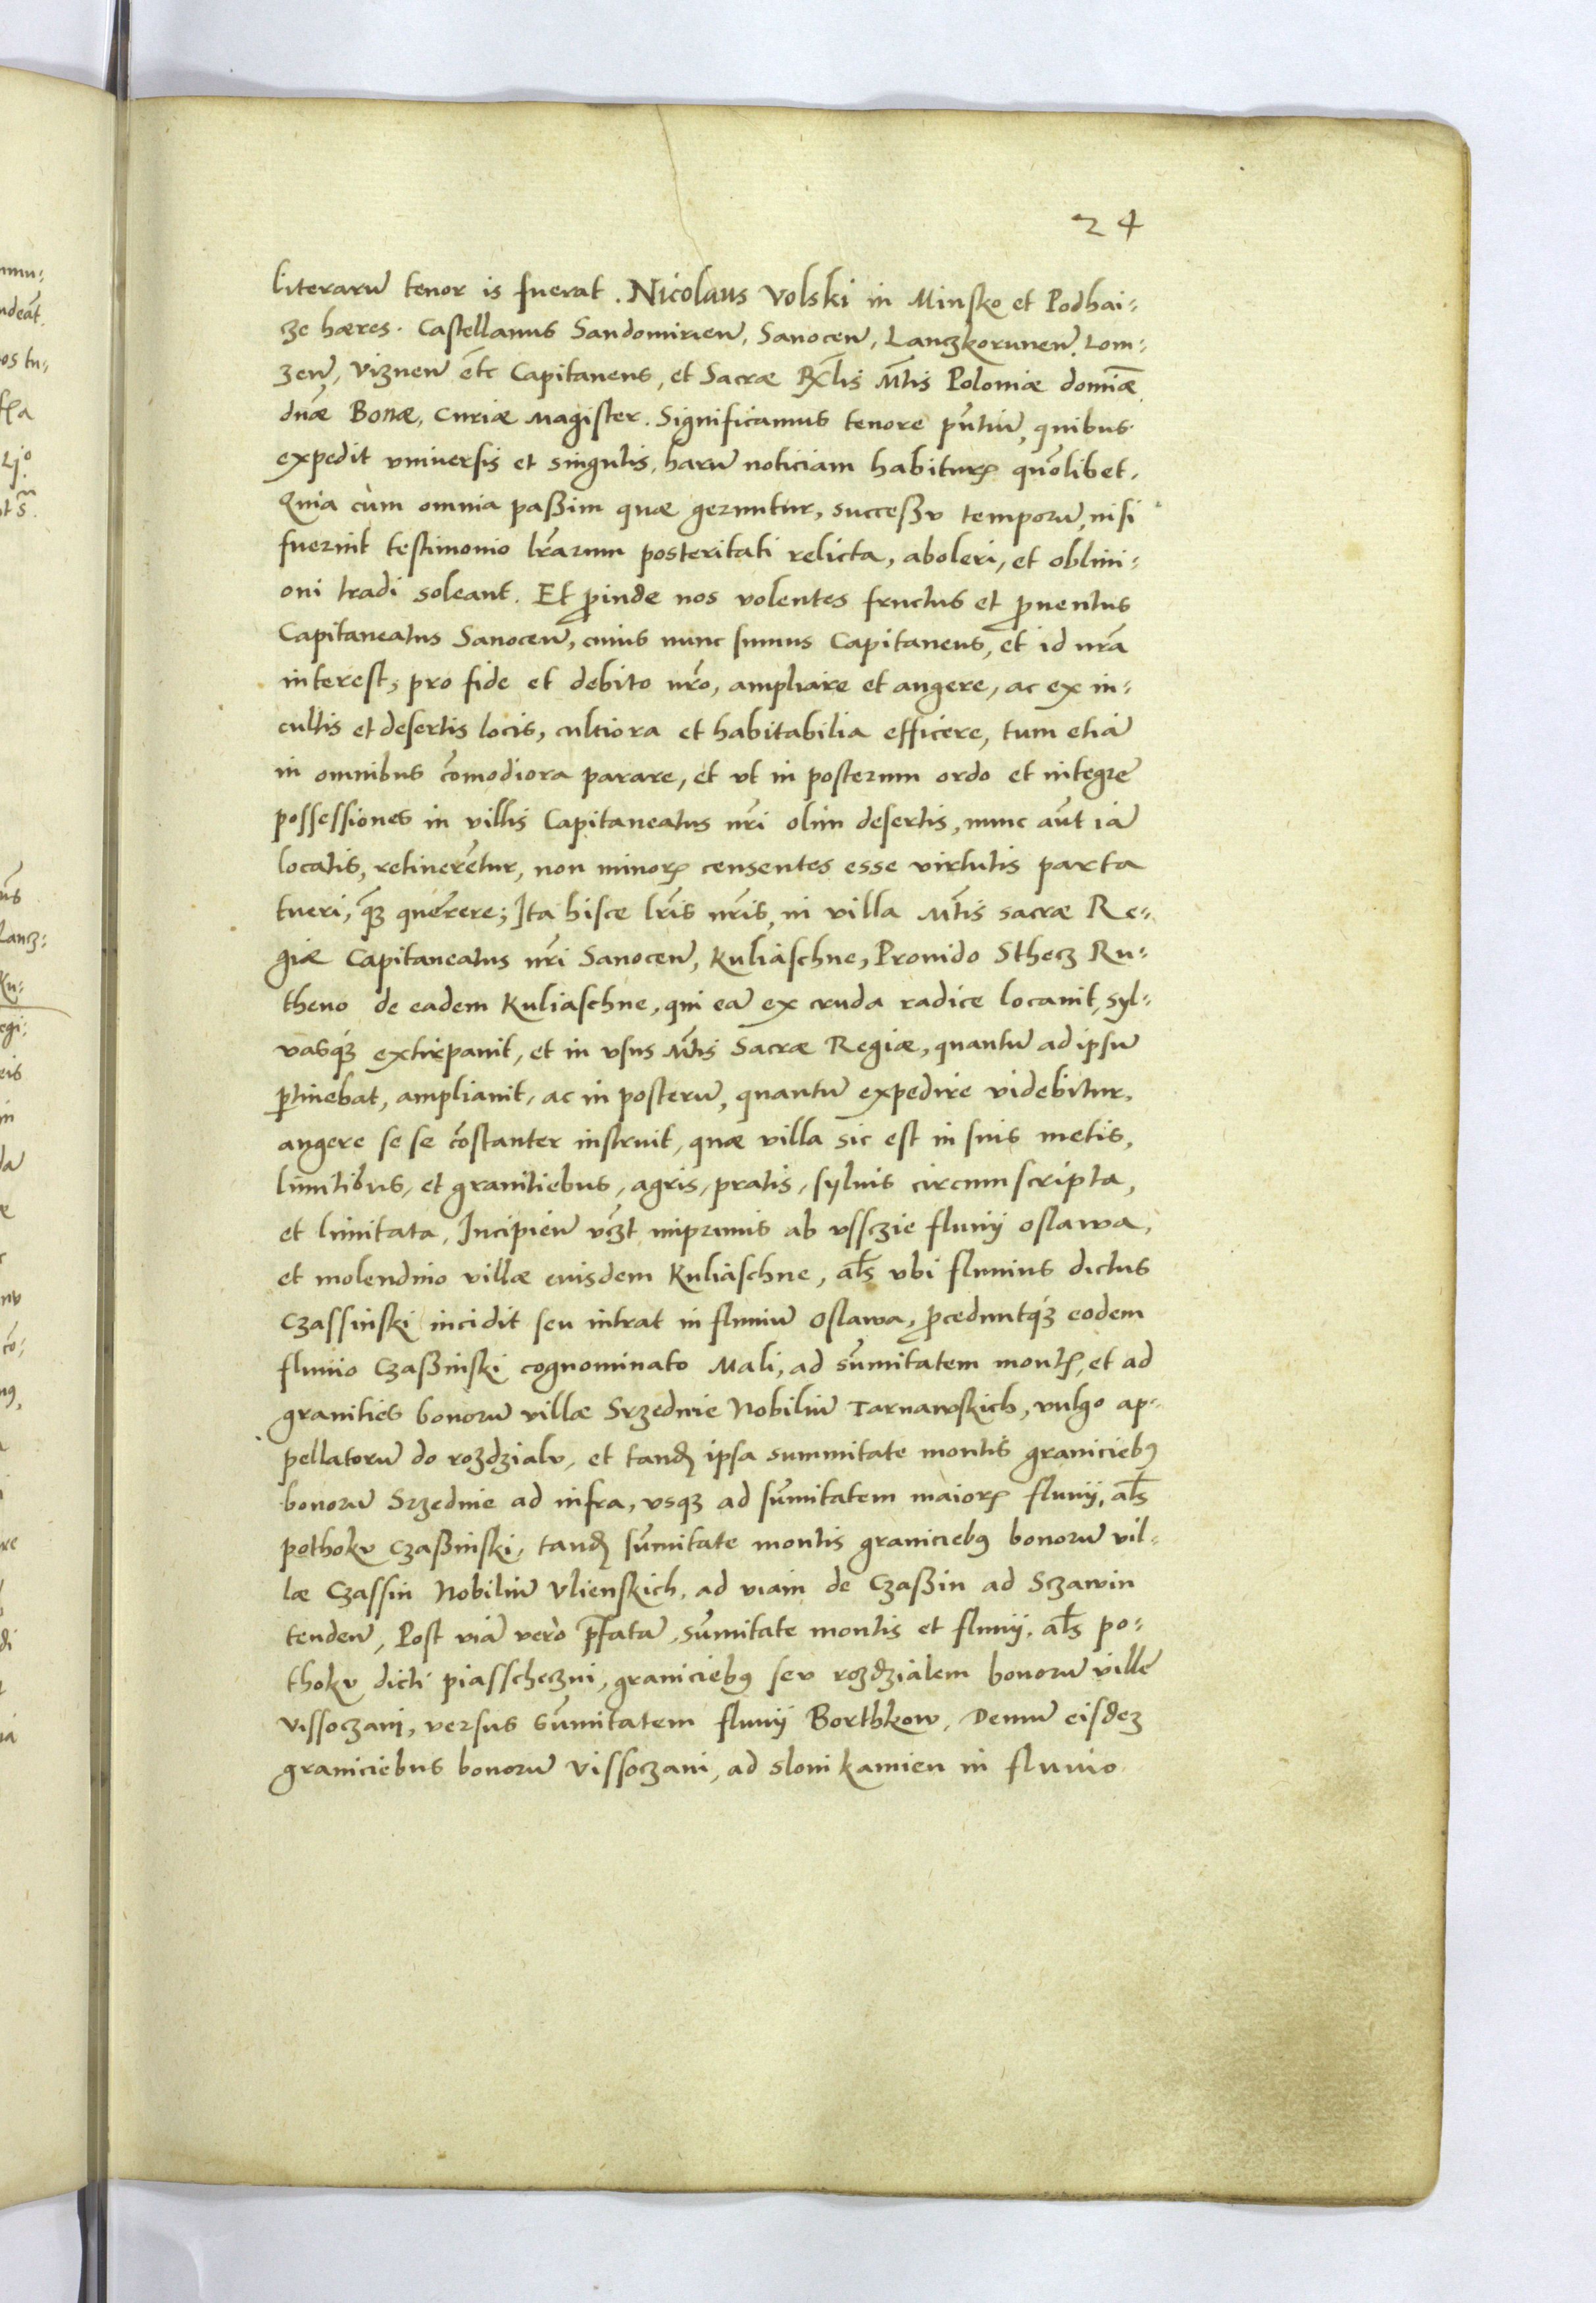 24
literarū tenor is fuerat. Nicolaus Volski in Minsko et Podhai:
cze hæres. Castellanus Sandomirieñ, Sanoceñ, Lanczkoruneñ, Lom:
zeñ, Vizneñ etc̄ Capitaneus, et Sacræ Rĝlis Mt̄is Poloniæ domiǣ
dnǣ Bonæ, Curiæ Magister. Significamus tenore pn̄tiū, quibus
expedit vniuersis et singulis, harū noticiam habiturꝭ quōlibet.
Quia cùm omnia paßim quæ geruntur, succeßv temporū, nisi
fuerint testimonio lr̄arum posteritati relicta, aboleri, et obliui:
oni tradi soleant. Et ꝓinde nos volentes fructus et ꝓuentus
Capitaneatus Sanoceñ, cuius nunc sumus Capitaneus, et id nr̄a
interest, pro fide et debito nr̄o, ampliare et augere, ac ex in:
cultis et desertis locis, cultiora et habitabilia efficere, tum etiā
in omnibus com̄odiora parare, et vt in posterum ordo et integre
possessiones in villis Capitaneatus nr̄i olim desertis, nunc aūt iā
locatis, retinerētur, non minorꝭ censentes esse virtutis parta
tueri, qꝫ quęrere; Ita hisce lr̄is nr̄is, in villa Mt̄is sacræ Re:
giæ Capitaneatus nr̄i Sanoceñ, Kuliaschne, Prouido Sthecz Ru:
theno de eadem Kuliaschne, qui eā ex cruda radice locauit, syl:
vasqꝫ extirpauit, et in vsus Mt̄is Sacræ Regiæ, quantū ad ipsū
ꝑtinebat, ampliauit, ac in posterū, quantū expedire videbitur,
augere se se cōstanter instruit, quæ villa sic est in suis metis,
limitibus, et granitiebus, agris, pratis, syluis circumscripta,
et limitata, Incipieñ vcꝫt imprimis ab vssczie fluuij oslawa,
et molendino villæ euisdem Kuliaschne, al̄s vbi fluuius dictus
Czassinski incidit seu intrat in fluuiū Oslawa, ꝓceduntqꝫ eodem
fluuio Czaßinski cognominato Mali, ad sum̄itatem montꝭ, et ad
granities bonorū villæ Srzednie Nobiliū Tarnawskich, vulgo ap:
pellatorū do rozdzialv, et tandꝭ ipsa summitate montis graniciebꝯ
bonorū Srzednie ad infra, vsqꝫ ad sum̄itatem maiorꝭ fluuij, al̄s
pothokv Czaßinski, tandꝭ sum̄itate montis graniciebꝯ bonorū vil:
læ Czassin Nobiliū Vlienskich, ad viam de Czaßin ad Sczawin
tendeñ, Post viā verò p̄fatā, sum̄itate montis et fluuij, al̄s po:
thokv dicti piasscheczni, graniciebꝯ sev rozdzialem bonorū ville
Vissoczani, versus sum̄itatem fluuij Borthkow, Demū eisdeꝫ
graniciebus bonorū Vissoczani, ad sloni kamien in fluuio